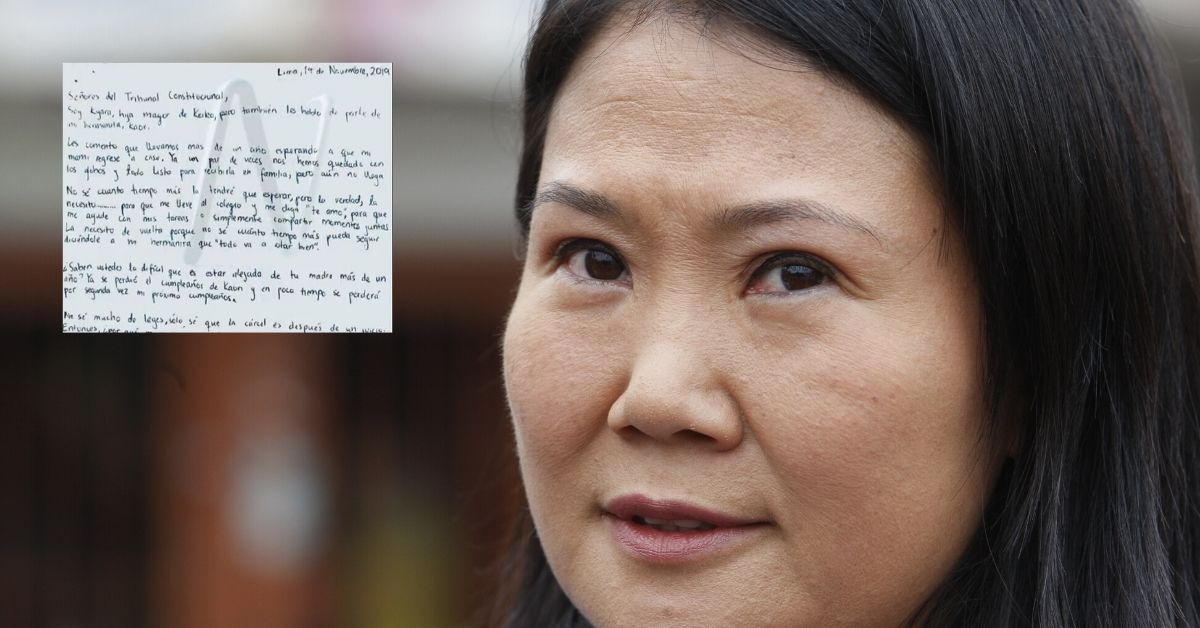 Lima, 14 de Noviembre, 2019
Señores del Tribunal Constitucional,
Soy Kyara, hija mayor de Keiko, pero también les hablo de parte de
mi hermanita, Kaori.
Les comento que llevamos más de un año esperando a que mi
mami regrese a casa. Ya un par de veces nos hemos quedado con
los globos y todo listo para recibirla en familia, pero aún no llega
No sé cuanto tiempo más la tendré que esperar, pero la verdad, la
necesito........ para que me lleve al colegio y me diga "te amo", para que
me ayude con mis tareas y simplemente compartir momentos juntas
La necesito de vuelta porque no sé cuánto tiempo más pueda seguir
diciéndole a mi hermanita que "todo va a estar bien".
¿Saben ustedes lo difícil que es estar alejada de tu madre más de un
año? Ya se perdió el cumpleaños de Kaori y en poco tiempo se perderá
por segunda vez mi próximo cumpleaños.
No sé mucho de leyes, sólo sé que la cárcel es después de un juicio.
Entonces, ¿por qué